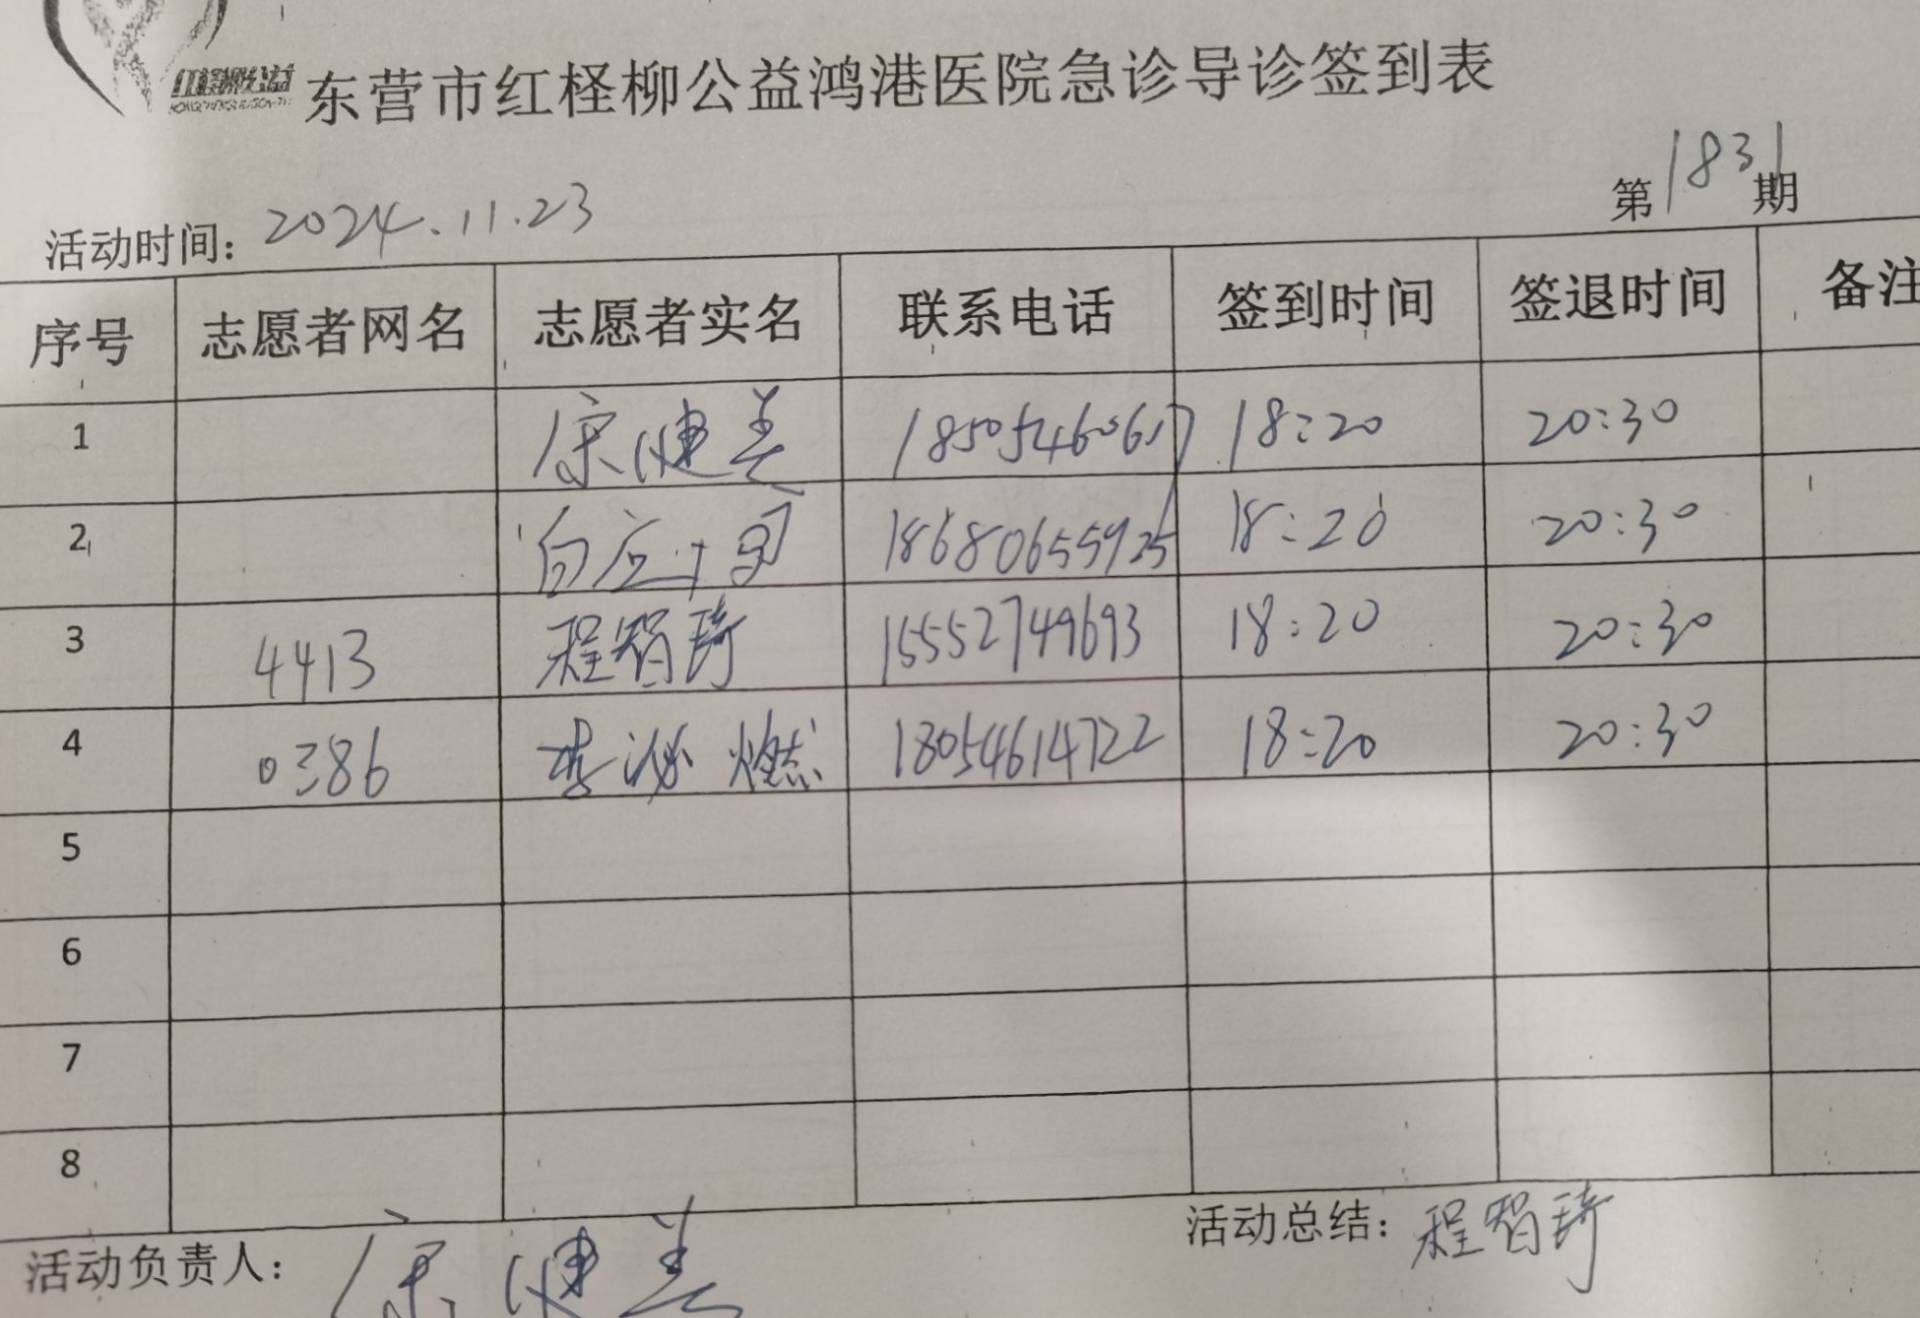 红柽柳公益
东营市红柽柳公益鸿港医院急诊导诊签到表
第1831期
活动时间：2024.11.23
序号 志愿者网名 志愿者实名 联系电话 签到时间 签退时间 备注
1 18505460617 18:20 20:30
2 18680655925 18:20 20:30
3 4413 程智琦 15552749693 18:20 20:30
4 0386 李 燃 18054614722 18:20 20:30
5
6
7
8
活动负责人： 活动总结：程智琦